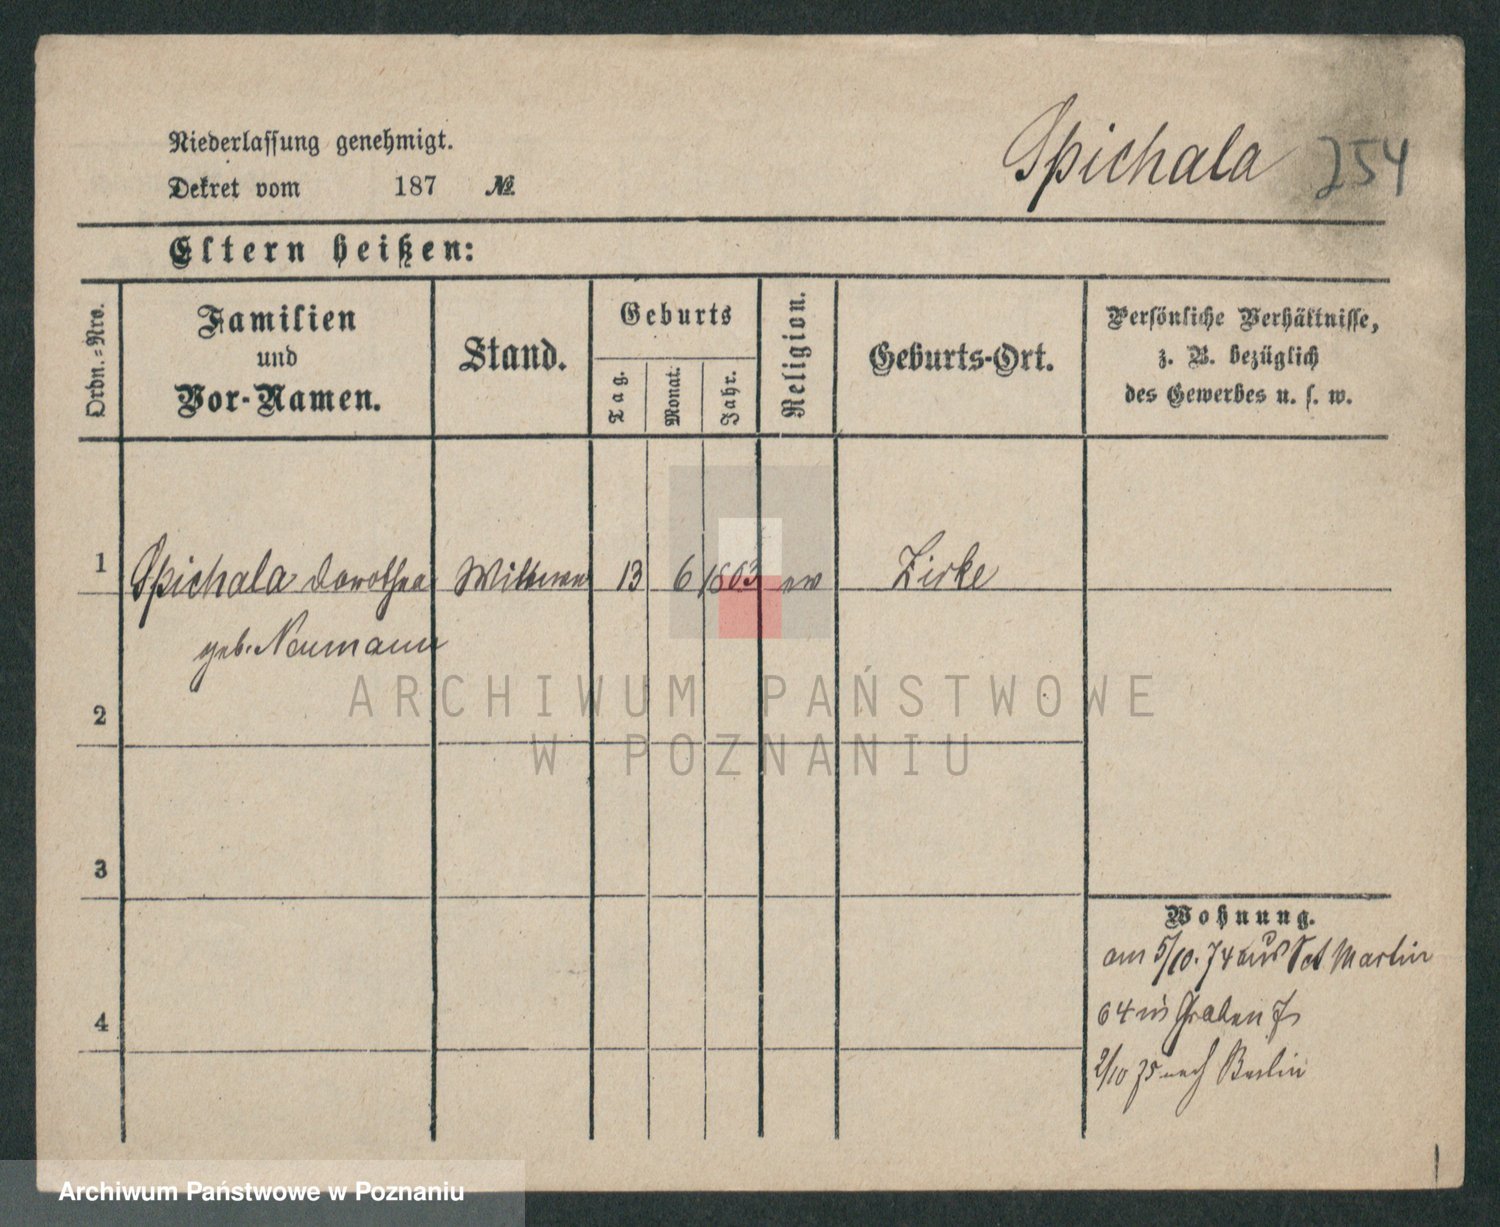 Niederlassung genehmigt.
Dekret vom 187 №
Spichala 254
Eltern heißen:
Ordn.=Nro.
Familien
und
Vor-Namen.
Stand.
Geburts
Tag.
Monat.
Jahr.
Religion.
Geburts-Ort.
Persönliche Verhältnisse,
z. B. bezüglich
des Gewerbes u. s. w.
1 Spichala Dorothea Wittwe 13 6 1803 ev Zirke
geb. Neumann
2
3
4
Wohnung.
am 5/10. 74 aus Sct Martin
64 in Graben 7
2/10 75 nach Berlin
ARCHIWUM PAŃSTWOWE
W POZNANIU
Archiwum Państwowe w Poznaniu